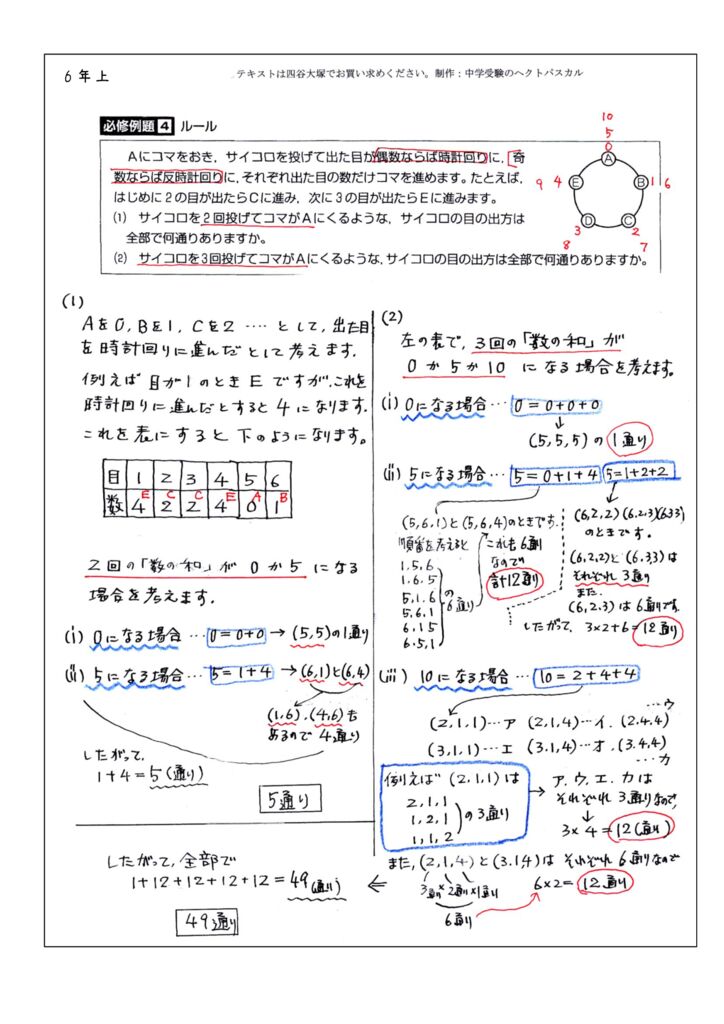 6年上
テキストは四谷大塚でお買い求めください。制作：中学受験のヘクトパスカル
必修例題 4 ルール
Aにコマをおき、サイコロを投げて出た目が偶数ならば時計回りに、奇
数ならば反時計回りに、それぞれ出た目の数だけコマを進めます。たとえば、
はじめに2の目が出たらCに進み、次に3の目が出たらEに進みます。
(1) サイコロを2回投げてコマがAにくるような、サイコロの目の出方は
全部で何通りありますか。
(2) サイコロを3回投げてコマがAにくるような、サイコロの目の出方は全部で何通りありますか。
10
5
0
A
9 4 E B 1 6
D C
3 2
8 7
(1)
Aを0, Bを1, Cを2 ‥‥ として, 出た目
を時計回りに進んだとして考えます.
例えば 目が1のとき E ですが、これを
時計回りに進んだとすると 4 になります.
これを表にすると下のようになります。
目 1 2 3 4 5 6
数 4 E 2 C 2 C 4 E 0 A 1 B
2回の「数の和」が 0 か 5 になる
場合を考えます.
(i) 0になる場合 … 0=0+0 → (5,5)の1通り
(ii) 5になる場合 … 5=1+4 → (6,1)と(6,4)
(1,6),(4,6)も
あるので 4通り
したがって,
1+4=5(通り)
5通り
(2)
左の表で, 3回の「数の和」が
0 か 5 か 10 になる場合を考えます.
(i) 0になる場合 … 0=0+0+0
(5,5,5)の1通り
(ii) 5になる場合 … 5=0+1+4 5=1+2+2
(5,6,1)と(5,6,4)のときです.
順番を考えると
1,5,6
1,6,5
5,1,6
5,6,1
6,1,5
6,5,1
の6通り
これも6通り
なので
計12通り
(6,2,2)(6,2,3)(6,3,3)
のときです.
(6,2,2)と(6,3,3)は
それぞれ 3通り
また.
(6,2,3)は6通りです.
したがって, 3×2+6=12通り
(iii) 10になる場合 … 10=2+4+4
(2,1,1)…ア (2,1,4)…イ. (2,4,4)…ウ
(3,1,1)…エ (3,1,4)…オ. (3,4,4)…カ
例えば (2,1,1)は
2,1,1
1,2,1
1,1,2
の3通り
→ ア, ウ, エ, カは
それぞれ 3通りなので,
3×4=12(通り)
また, (2,1,4)と(3,1,4)は それぞれ6通りなので
3通り×2通り×1通り
6通り
6×2=12通り
したがって, 全部で
1+12+12+12+12=49(通り)
49通り